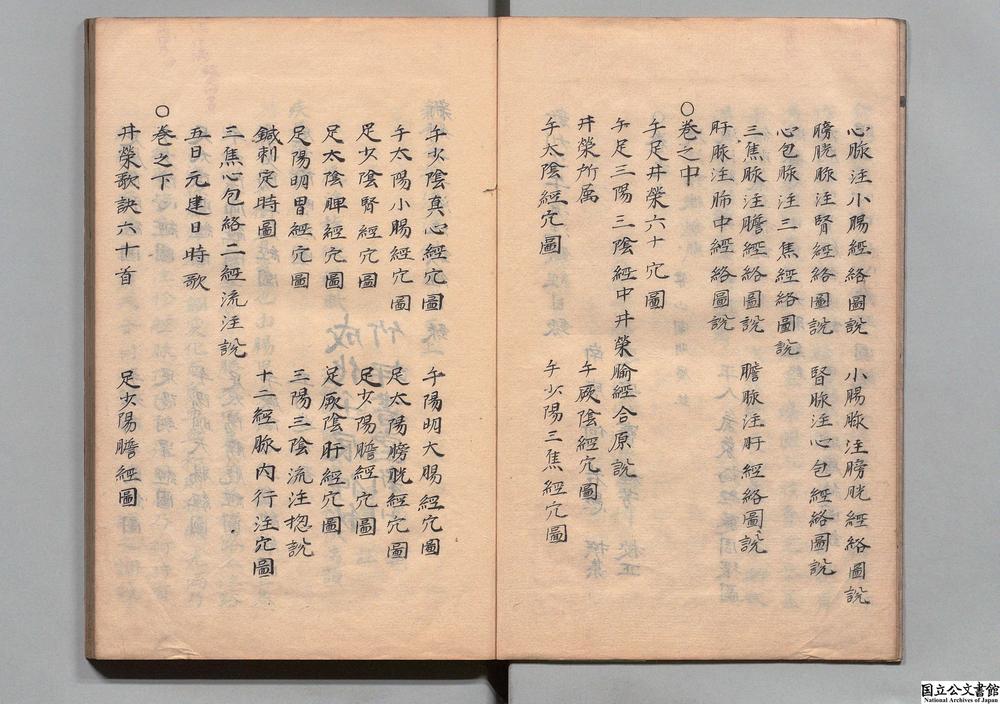 心脈注小腸經絡圖說 小腸脈注膀胱經絡圖說
膀胱脈注腎經絡圖說 腎脈注心包經絡圖說
心包脈注三焦經絡圖說
三焦脈注膽經絡圖說 膽脈注肝經絡圖說
肝脈注肺中經絡圖說
○卷之中
手足井榮六十穴圖
手足三陽三陰經中井榮腧經合原說
井榮所属 手厥陰經穴圖
手太陰經穴圖 手少陽三焦經穴圖
手少陰真心經穴圖 手陽明大腸經穴圖
手太陽小腸經穴圖 足太陽膀胱經穴圖
足少陰腎經穴圖 足少陽膽經穴圖
足太陰脾經穴圖 足厥陰肝經穴圖
足陽明胃經穴圖 三陽三陰流注揔說
鍼刺定時圖 十二經脈内行注穴圖
三焦心包絡二經流注說
五日元建日時歌
○卷之下
井榮歌訣六十首 足少陽膽經圖
国立公文書館
National Archives of Japan